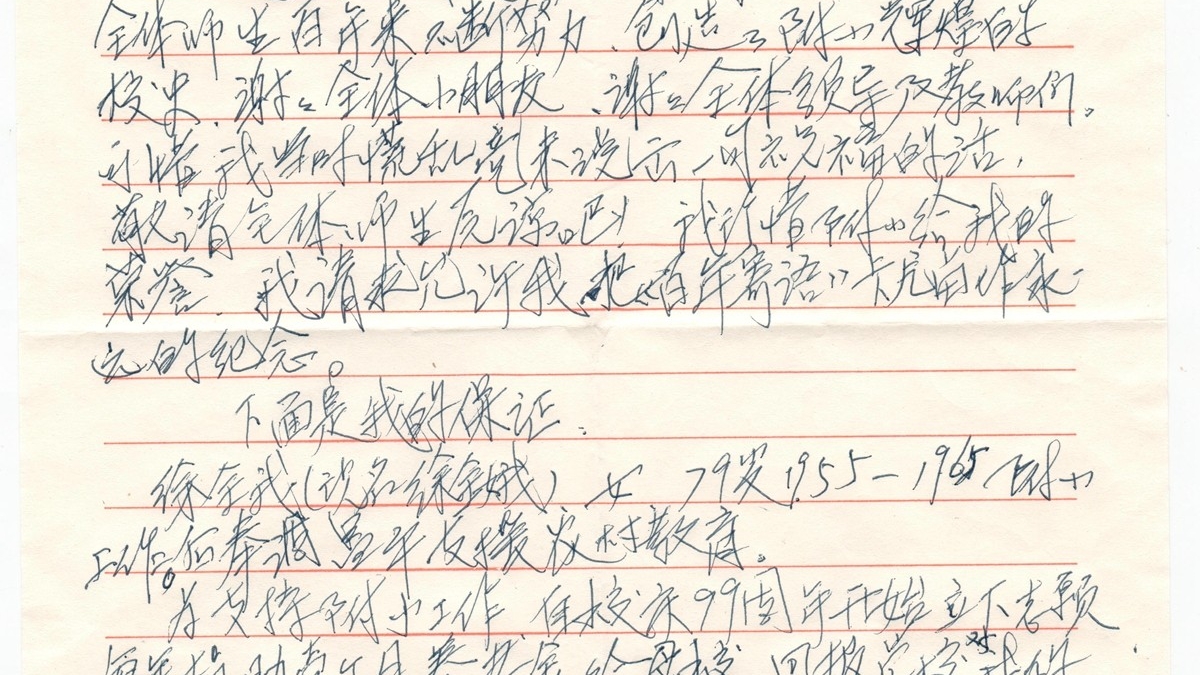 全体师生百年来不断努力、创造了附小辉煌的
校史、谢谢全体小朋友、谢谢全体领导及教师们。
可惜我当时慌乱竟未说出一句祝福的话，
敬请全体师生原谅吧！我珍惜附小给我的
荣誉、我请求允许我把“百年寄语”卡片留作永
远的纪念。
下面是我的保证：
徐全我（现名徐全娥）女 79岁1955—1965附小
工作。后奉调 支援农村教育。
为支持附小工作 在校庆99周年开始立下志愿
每年 母校 回报